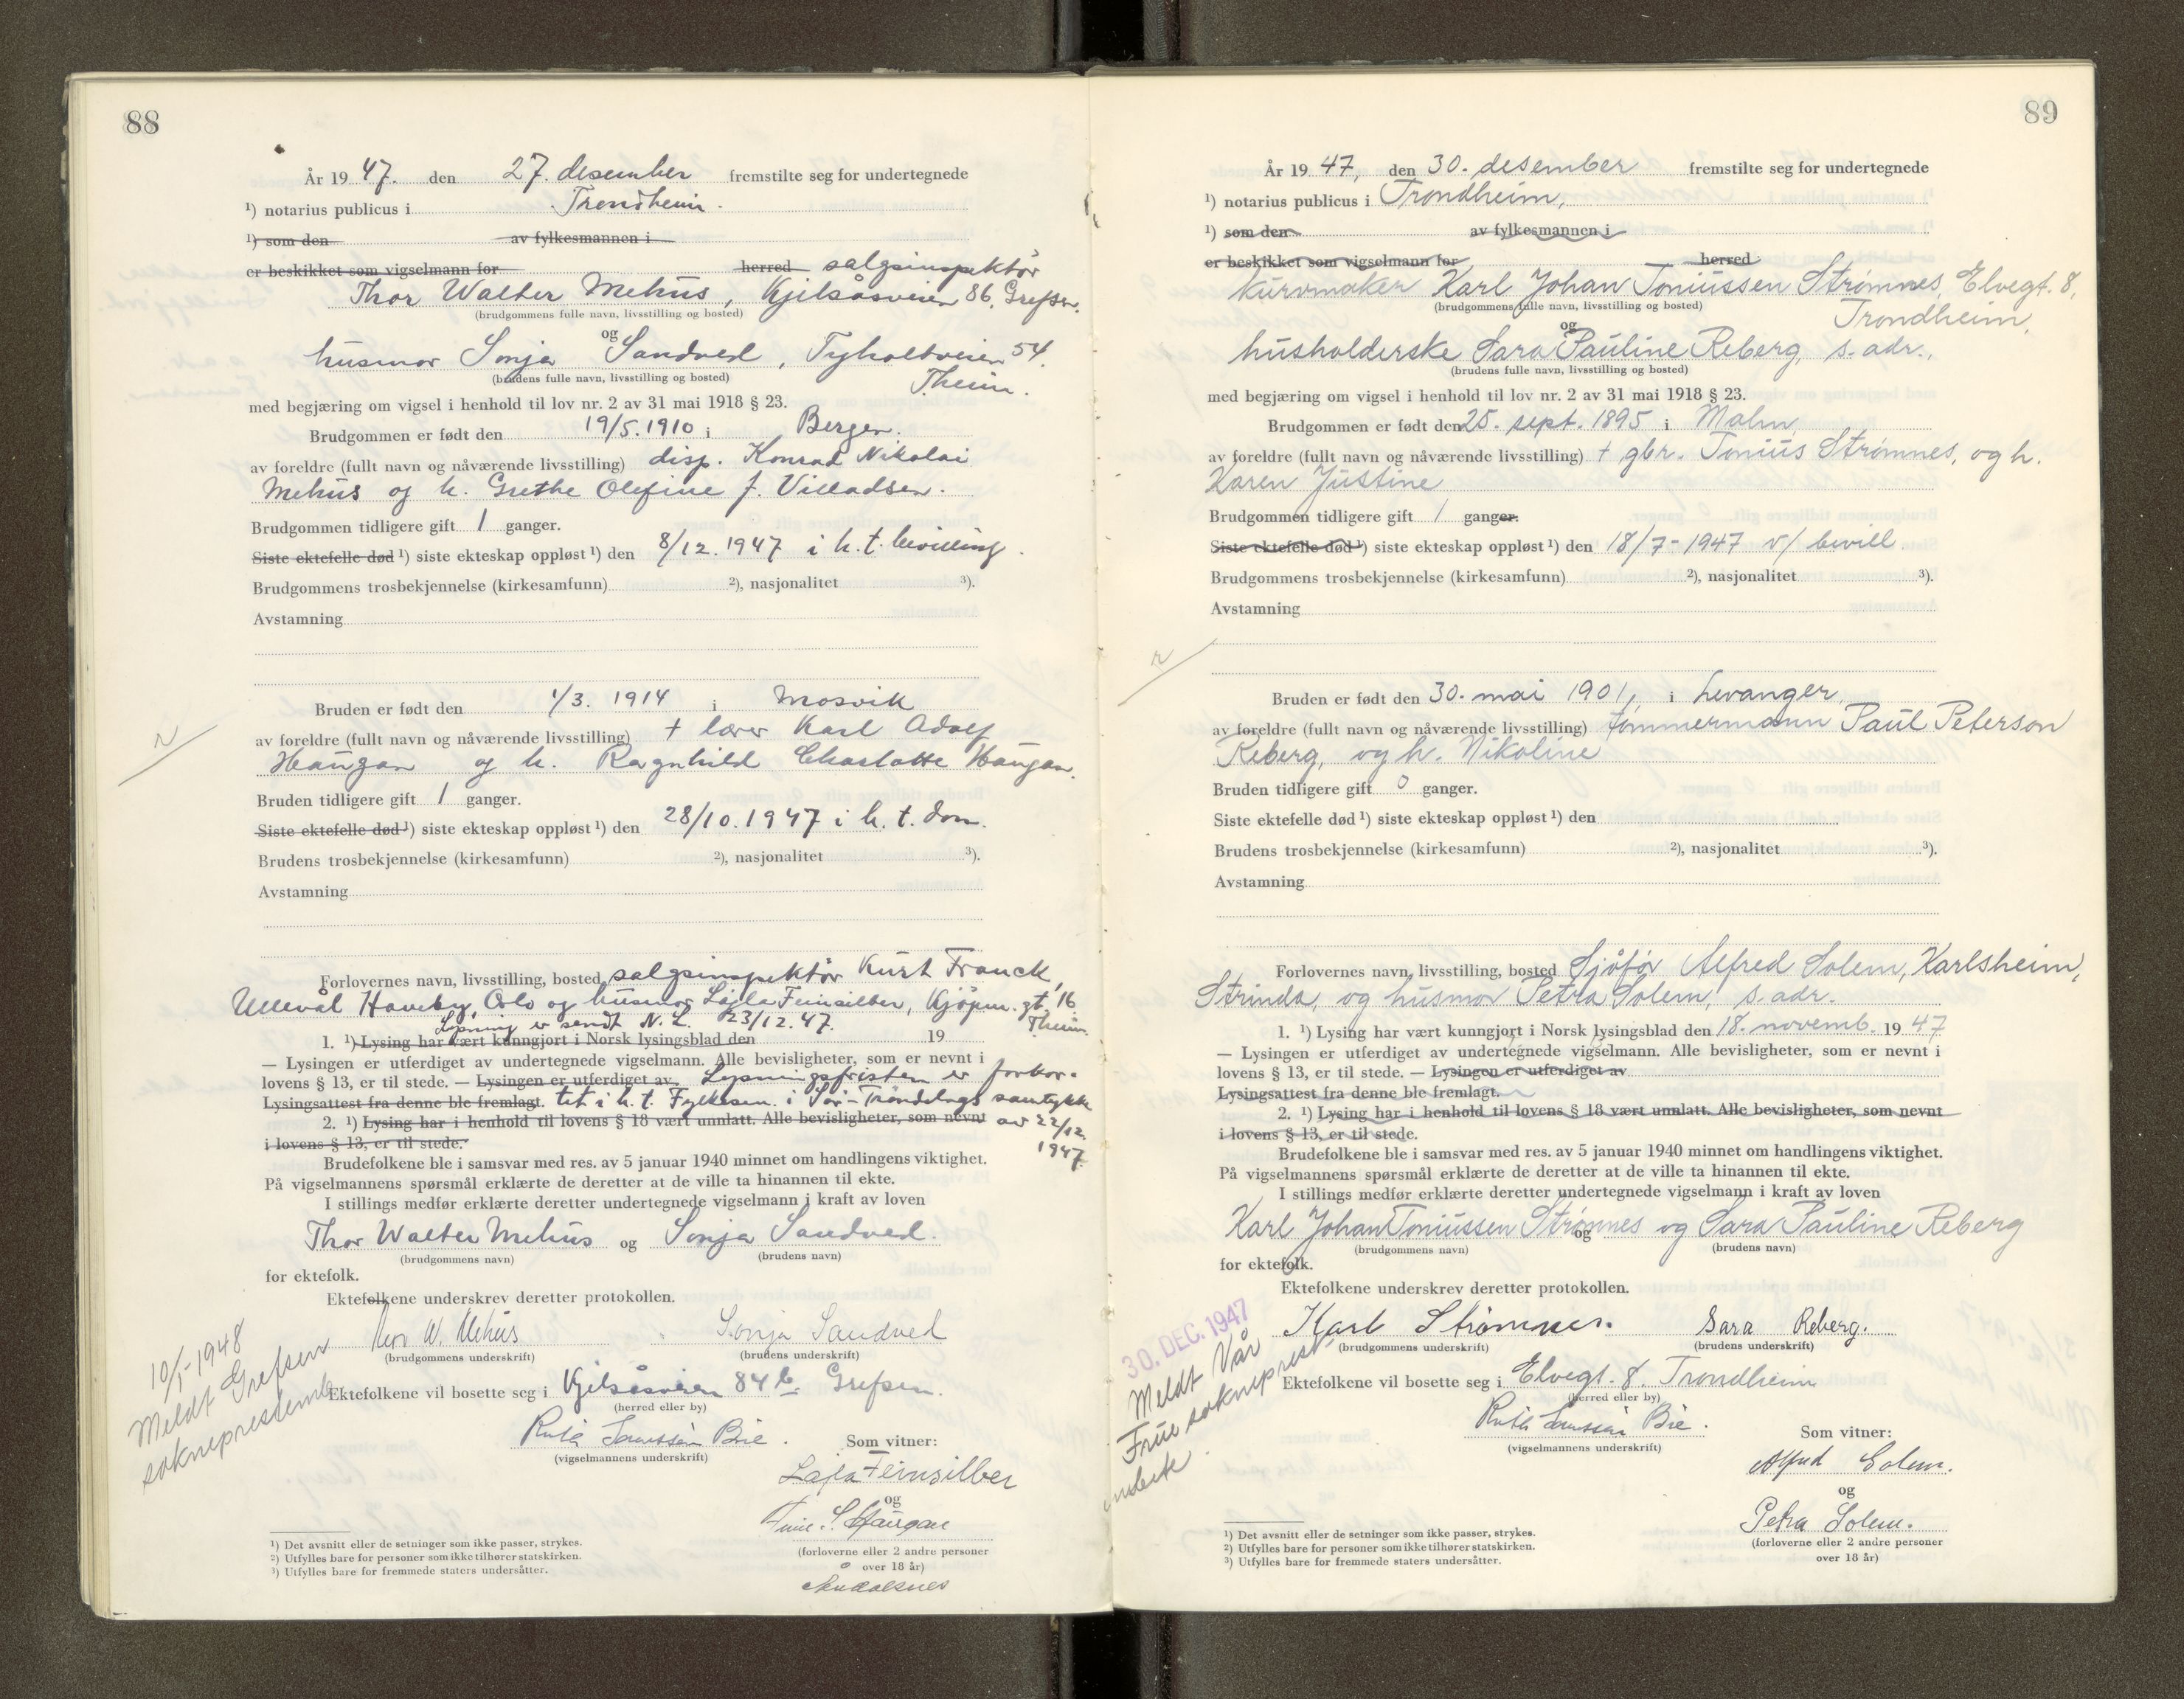 88
År 19 47. den 27. desember fremstilte seg for undertegnede
¹) notarius publicus i Trondheim.
¹) som den av fylkesmannen i
er beskikket som vigselmann for herred salgsinspektör
Thor Walter Mehus, Kjelsåsveien 86, Grefsen.
(brudgommens fulle navn, livsstilling og bosted)
og
husmor Sonja Sandved, Tyholtveien 54
(brudens fulle navn, livsstilling og bosted) T.heim.
med begjæring om vigsel i henhold til lov nr. 2 av 31 mai 1918 § 23.
Brudgommen er født den 19/5.1910 i Bergen.
av foreldre (fullt navn og nåværende livsstilling) disp. Konrad Nikolai
Mehus og h. Grethe Olefine f. Villadsen.
Brudgommen tidligere gift 1 ganger.
Siste ektefelle død ¹) siste ekteskap oppløst ¹) den 8/12. 1947 i h. t. bevilling.
Brudgommens trosbekjennelse (kirkesamfunn) ²), nasjonalitet ³).
Avstamning
Bruden er født den 1/3. 1914 i Mosvik
av foreldre (fullt navn og nåværende livsstilling) + lærer Karl Adolf
Haugan og h. Ragnhild Charlotte Haugan.
Bruden tidligere gift 1 ganger.
Siste ektefelle død ¹) siste ekteskap oppløst ¹) den 28/10.1947 i h. t. dom.
Brudens trosbekjennelse (kirkesamfunn) ²), nasjonalitet ³).
Avstamning
Forlovernes navn, livsstilling, bosted salgsinspektör Kurt Franck,
Ullevål Haveby, Oslo og husmor Lajla Feinsilber, Kjöpm. gt. 16
Lysning er sendt N. L. 23/12.47. T.heim.
1. ¹) Lysing har vært kunngjort i Norsk lysingsblad den 19
— Lysingen er utferdiget av undertegnede vigselmann. Alle bevisligheter, som er nevnt i
lovens § 13, er til stede. — Lysingen er utferdiget av Lysningsfristen er forkor-
Lysingsattest fra denne ble fremlagt. tet i h. t. Fylkesm. i Sør-Trøndelags samtykke
2. ¹) Lysing har i henhold til lovens § 18 vært unnlatt. Alle bevisligheter, som nevnt av 22/12.
i lovens § 13, er til stede. 1947.
Brudefolkene ble i samsvar med res. av 5 januar 1940 minnet om handlingens viktighet.
På vigselmannens spørsmål erklærte de deretter at de ville ta hinannen til ekte.
I stillings medfør erklærte deretter undertegnede vigselmann i kraft av loven
Thor Walter Mehus og Sonja Sandved.
(brudgommens navn) (brudens navn)
for ektefolk.
Ektefolkene underskrev deretter protokollen.
Thor W. Mehus Sonja Sandved
(brudgommens underskrift) (brudens underskrift)
10/1-1948
Meldt Grefsen
sokneprestemb.
Ektefolkene vil bosette seg i Kjelsåsveien 84 b Grefsen.
(herred eller by)
Bie.
(vigselmannens underskrift)
Som vitner:
Lajla Feinsilber
og
S. Haugan
(forloverne eller 2 andre personer
over 18 år)
Åndalsnes
¹) Det avsnitt eller de setninger som ikke passer, strykes.
²) Utfylles bare for personer som ikke tilhører statskirken.
³) Utfylles bare for fremmede staters undersåtter.
89
År 19 47, den 30. desember fremstilte seg for undertegnede
¹) notarius publicus i Trondheim,
¹) som den av fylkesmannen i
er beskikket som vigselmann for herred
kurvmaker Karl Johan Toniussen Strømnes, Elvegt. 8,
(brudgommens fulle navn, livsstilling og bosted) Trondheim,
og
husholderske Sara Pauline Reberg, s. adr.,
(brudens fulle navn, livsstilling og bosted)
med begjæring om vigsel i henhold til lov nr. 2 av 31 mai 1918 § 23.
Brudgommen er født den 25. sept. 1895 i Malm,
av foreldre (fullt navn og nåværende livsstilling) + gbr. Tonius Strømnes, og h.
Karen Justine
Brudgommen tidligere gift 1 ganger.
Siste ektefelle død ¹) siste ekteskap oppløst ¹) den 18/7-1947 v/ bevill.
Brudgommens trosbekjennelse (kirkesamfunn) ²), nasjonalitet ³).
Avstamning
Bruden er født den 30. mai 1901, i Levanger,
av foreldre (fullt navn og nåværende livsstilling) tømmermann Paul Peterson
Reberg, og h. Nikoline
Bruden tidligere gift 0 ganger.
Siste ektefelle død ¹) siste ekteskap oppløst ¹) den
Brudens trosbekjennelse (kirkesamfunn) ²), nasjonalitet ³).
Avstamning
Forlovernes navn, livsstilling, bosted Sjåfør Alfred Solem, Karlsheim,
Strinda, og husmor Petra Solem, s. adr.
1. ¹) Lysing har vært kunngjort i Norsk lysingsblad den 18. novemb. 19 47
— Lysingen er utferdiget av undertegnede vigselmann. Alle bevisligheter, som er nevnt i
lovens § 13, er til stede. — Lysingen er utferdiget av
Lysingsattest fra denne ble fremlagt.
2. ¹) Lysing har i henhold til lovens § 18 vært unnlatt. Alle bevisligheter, som nevnt
i lovens § 13, er til stede.
Brudefolkene ble i samsvar med res. av 5 januar 1940 minnet om handlingens viktighet.
På vigselmannens spørsmål erklærte de deretter at de ville ta hinannen til ekte.
I stillings medfør erklærte deretter undertegnede vigselmann i kraft av loven
Karl Johan Toniussen Strømnes og og Sara Pauline Reberg
(brudgommens navn) (brudens navn)
for ektefolk.
Ektefolkene underskrev deretter protokollen.
Karl Strømnes. Sara Reberg.
(brudgommens underskrift) (brudens underskrift)
30. DEC. 1947
Meldt Vår
Frue sokneprest-
embete.
Ektefolkene vil bosette seg i Elvegt. 8, Trondheim
(herred eller by)
Bie.
(vigselmannens underskrift)
Som vitner:
Alfred Solem.
og
Petra Solem.
(forloverne eller 2 andre personer
over 18 år)
¹) Det avsnitt eller de setninger som ikke passer, strykes.
²) Utfylles bare for personer som ikke tilhører statskirken.
³) Utfylles bare for fremmede staters undersåtter.